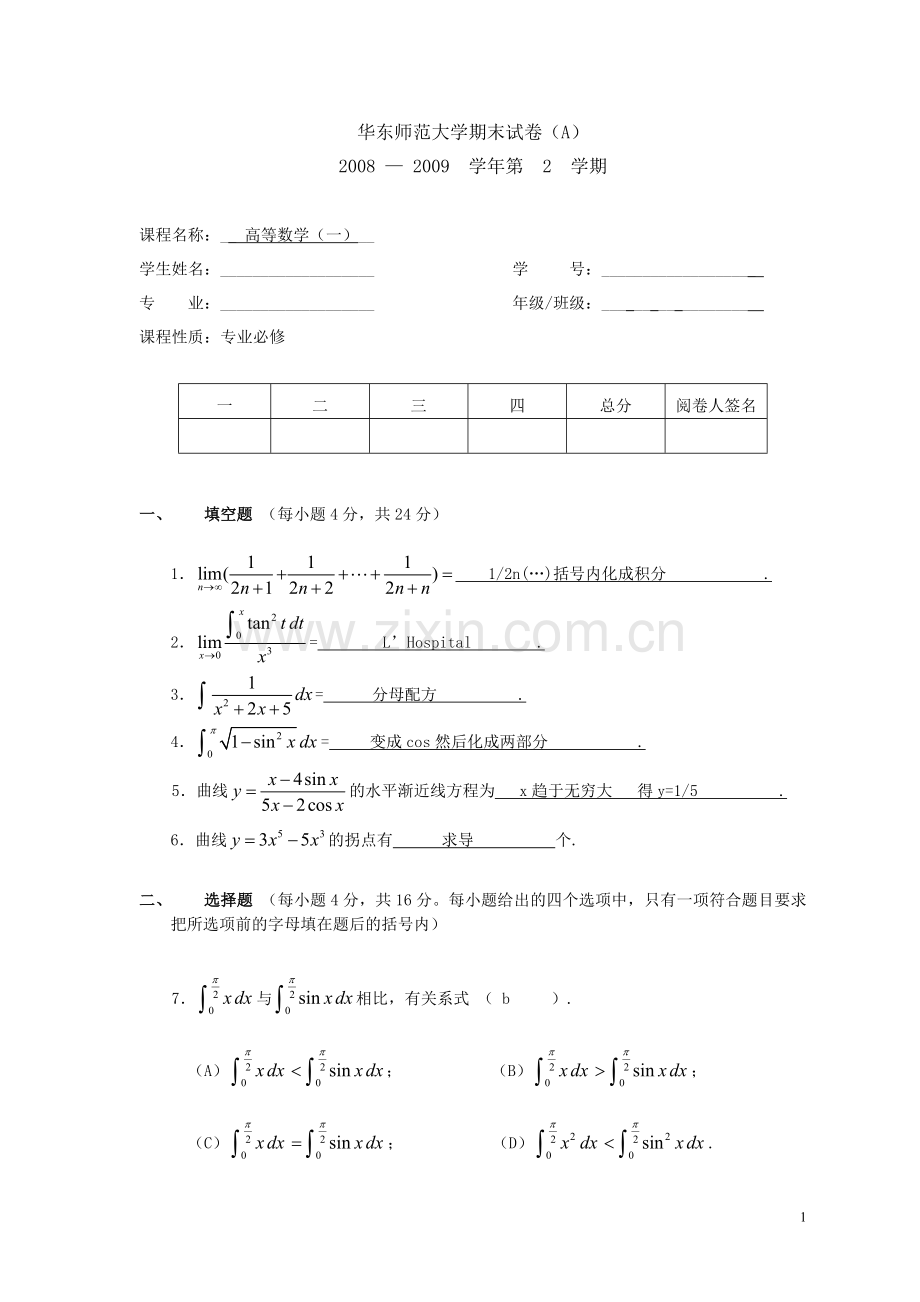 华东师范大学期末试卷（A）
2008 — 2009 学年第 2 学期
课程名称：__高等数学（一）__
学生姓名：___________________ 学 号：___________________
专 业：___________________ 年级/班级：___________________
课程性质：专业必修
一 二 三 四 总分 阅卷人签名
一、 填空题 （每小题4分，共24分）
1. lim_{n→∞}(1/(2n+1) + 1/(2n+2) + ⋯ + 1/(2n+n)) = 1/2n(…)括号内化成积分 .
2. lim_{x→0} (∫_0^x tan² t dt)/x³ = L’Hospital .
3. ∫ 1/(x²+2x+5) dx = 分母配方 .
4. ∫_0^π √(1−sin² x) dx = 变成cos然后化成两部分 .
5. 曲线 y = (x−4sin x)/(5x−2cos x) 的水平渐近线方程为 x趋于无穷大 得y=1/5 .
6. 曲线 y = 3x⁵ − 5x³ 的拐点有 求导 个.
二、 选择题 （每小题4分，共16分。每小题给出的四个选项中，只有一项符合题目要求
把所选项前的字母填在题后的括号内）
7. ∫_0^{π/2} x dx 与 ∫_0^{π/2} sin x dx 相比，有关系式 （ b ）.
（A）∫_0^{π/2} x dx < ∫_0^{π/2} sin x dx； （B）∫_0^{π/2} x dx > ∫_0^{π/2} sin x dx；
（C）∫_0^{π/2} x dx = ∫_0^{π/2} sin x dx； （D）∫_0^{π/2} x² dx < ∫_0^{π/2} sin² x dx.
1
www.zixin.com.cn